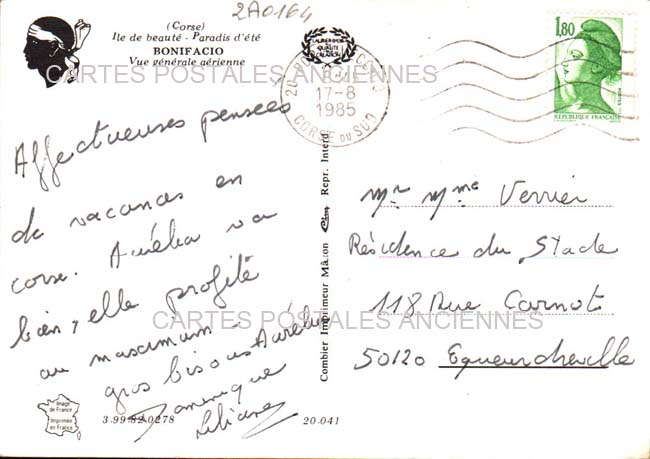 2A0164
(Corse)
Ile de beauté - Paradis d'été
BONIFACIO
Vue générale aérienne
LABEL D'OR
QUALITÉ
CRÉATION
17-8
1985
CORSE DU SUD
1,80
REPUBLIQUE FRANÇAISE
CARTES POSTALES ANCIENNES
Affectueuses pensées
de vacances en
corse. Aurélia va
bien, elle profite
au maximum -
gros bisous Aurélia
Dominique
Liliane
Combier Imprimeur Mâcon Cim Repr. Interd.
Mr Mme Verrier
Résidence du Stade
118 Rue Carnot
50120 Equeurdreville
CARTES POSTALES ANCIENNES
Image
de France
Imprimée
en France
3.99.82.0278
20-041